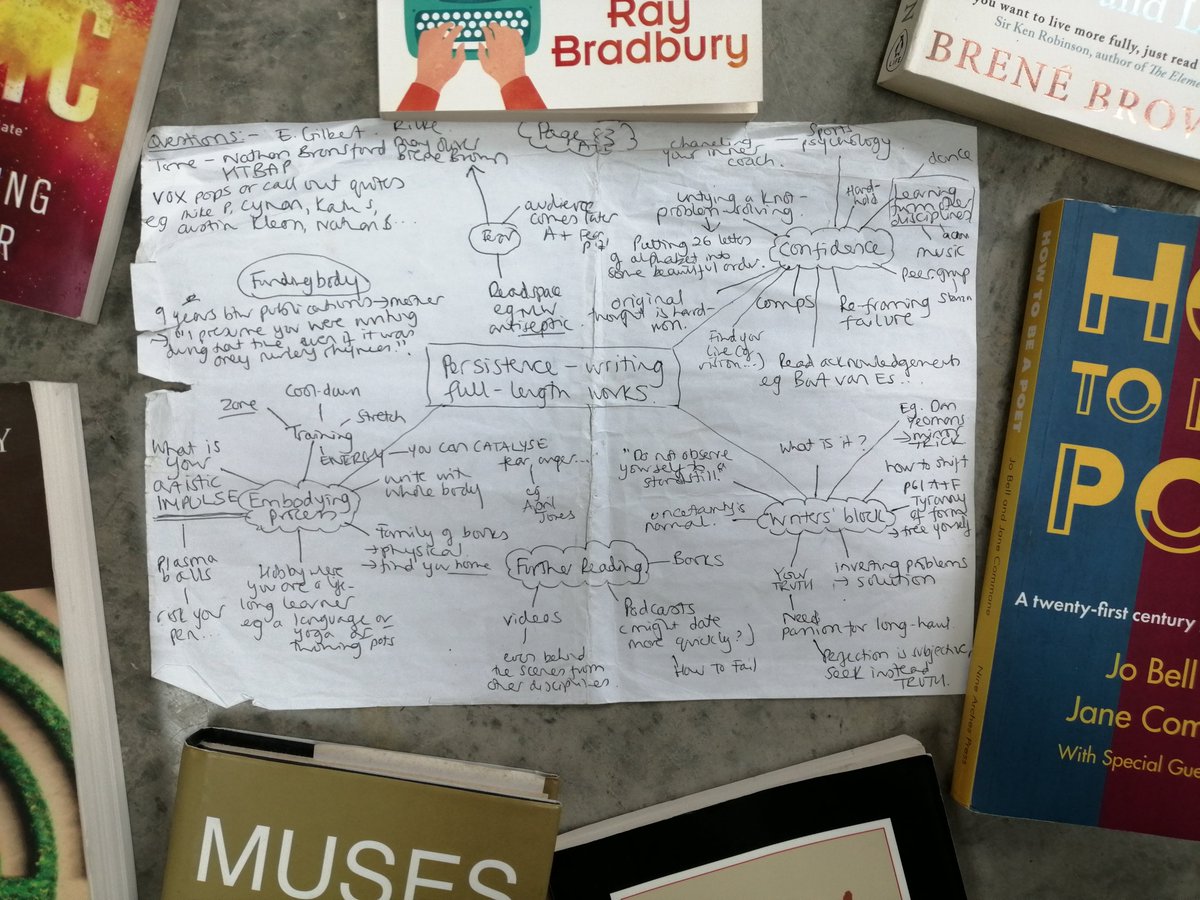 Ray
Bradbury
you want to live more fully, just read
Sir Ken Robinson, author of The Element
BRENÉ BROW
IC
ate'
ING
R
Questions:- E. Gilbert. Rilke
Time - Nathan Bransford Mary Oliver
HTBAP Brene Brown
vox pops or call out quotes
eg Mike P, Cynan, Kate's,
Austin Kleon, Nathan B...
Page
channeling
your inner
coach.
sports
psychology
dance
Hard-
hold
Learning
from other
disciplines
music
peer group
untying a knot
problem-solving.
Putting 26 letters
of alphabet into
some beautiful order.
Confidence
original
thought is hard-
won.
comps
Re-framing
failure
Find your
Read acknowledgements
eg Bart van Es...
audience
comes later
A + Fear
Read space
antiseptic
Finding body
9 years btw publications → mother
→ "I presume you were writing
during that time even if it was
only nursery rhymes".
Persistence - writing
full-length works.
cool-down
Zone
Stretch
Training
ENERGY - you can CATALYSE
fear, anger...
eg
April
Jones
What is
your
artistic
IMPULSE
Embodying
Process
write with
whole body
Family of books
→ physical
→ find your home
Plasma
balls
risk your
pen...
Hobby where
you are a life-
long learner
eg a language or
yoga or
throwing pots
Further Reading
Books
videos
even behind
the scenes from
other disciplines.
Podcasts
(might date
more quickly?)
How to Fail
What is it?
Eg. Dan
Yeomans
→ mirror
TRICK
"Do not observe
yourself to a
standstill".
uncertainty is
normal.
Writers' block
how to shift
PG1 A+F
Tyranny
of form/
free yourself
Your
TRUTH
inventing problems
→ solution
Need
passion for long-haul.
Perfection is subjective,
seek instead
TRUTH.
HOW TO BE A POET
Jo Bell and Jane Commane
Nine Arches Press
H
TO
PO
A twenty-first century
Jo Bell
Jane Com
With Special Gue
Y
MUSES